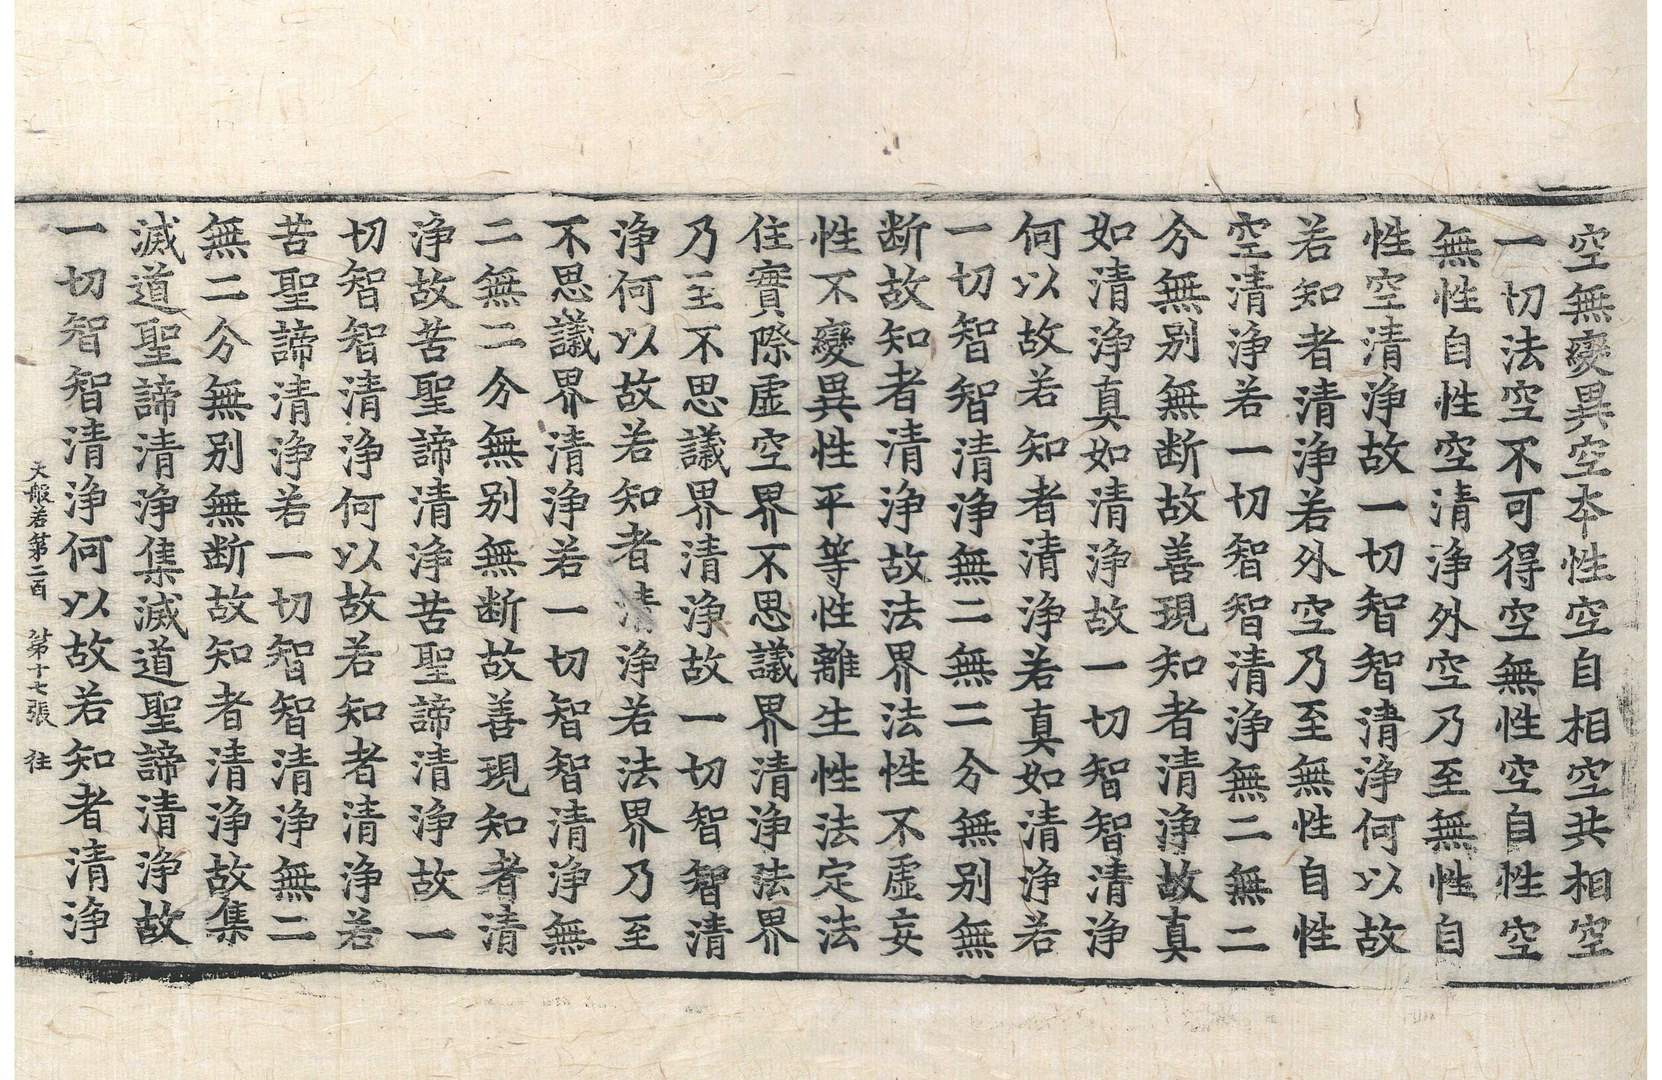 空無變異空本性空自相空共相空
一切法空不可得空無性空自性空
無性自性空清淨外空乃至無性自
性空清淨故一切智智清淨何以故
若知者清淨若外空乃至無性自性
空清淨若一切智智清淨無二無二
分無别無断故善現知者清淨故真
如清淨真如清淨故一切智智清淨
何以故若知者清淨若真如清淨若
一切智智清淨無二無二分無别無
断故知者清淨故法界法性不虛妄
性不變異性平等性離生性法定法
住實際虛空界不思議界清淨法界
乃至不思議界清淨故一切智智清
淨何以故若知者清淨若法界乃至
不思議界清淨若一切智智清淨無
二無二分無别無断故善現知者清
淨故苦聖諦清淨苦聖諦清淨故一
切智智清淨何以故若知者清淨若
苦聖諦清淨若一切智智清淨無二
無二分無别無断故知者清淨故集
滅道聖諦清淨集滅道聖諦清淨故
一切智智清淨何以故若知者清淨
大般若第二百 第十七張 往